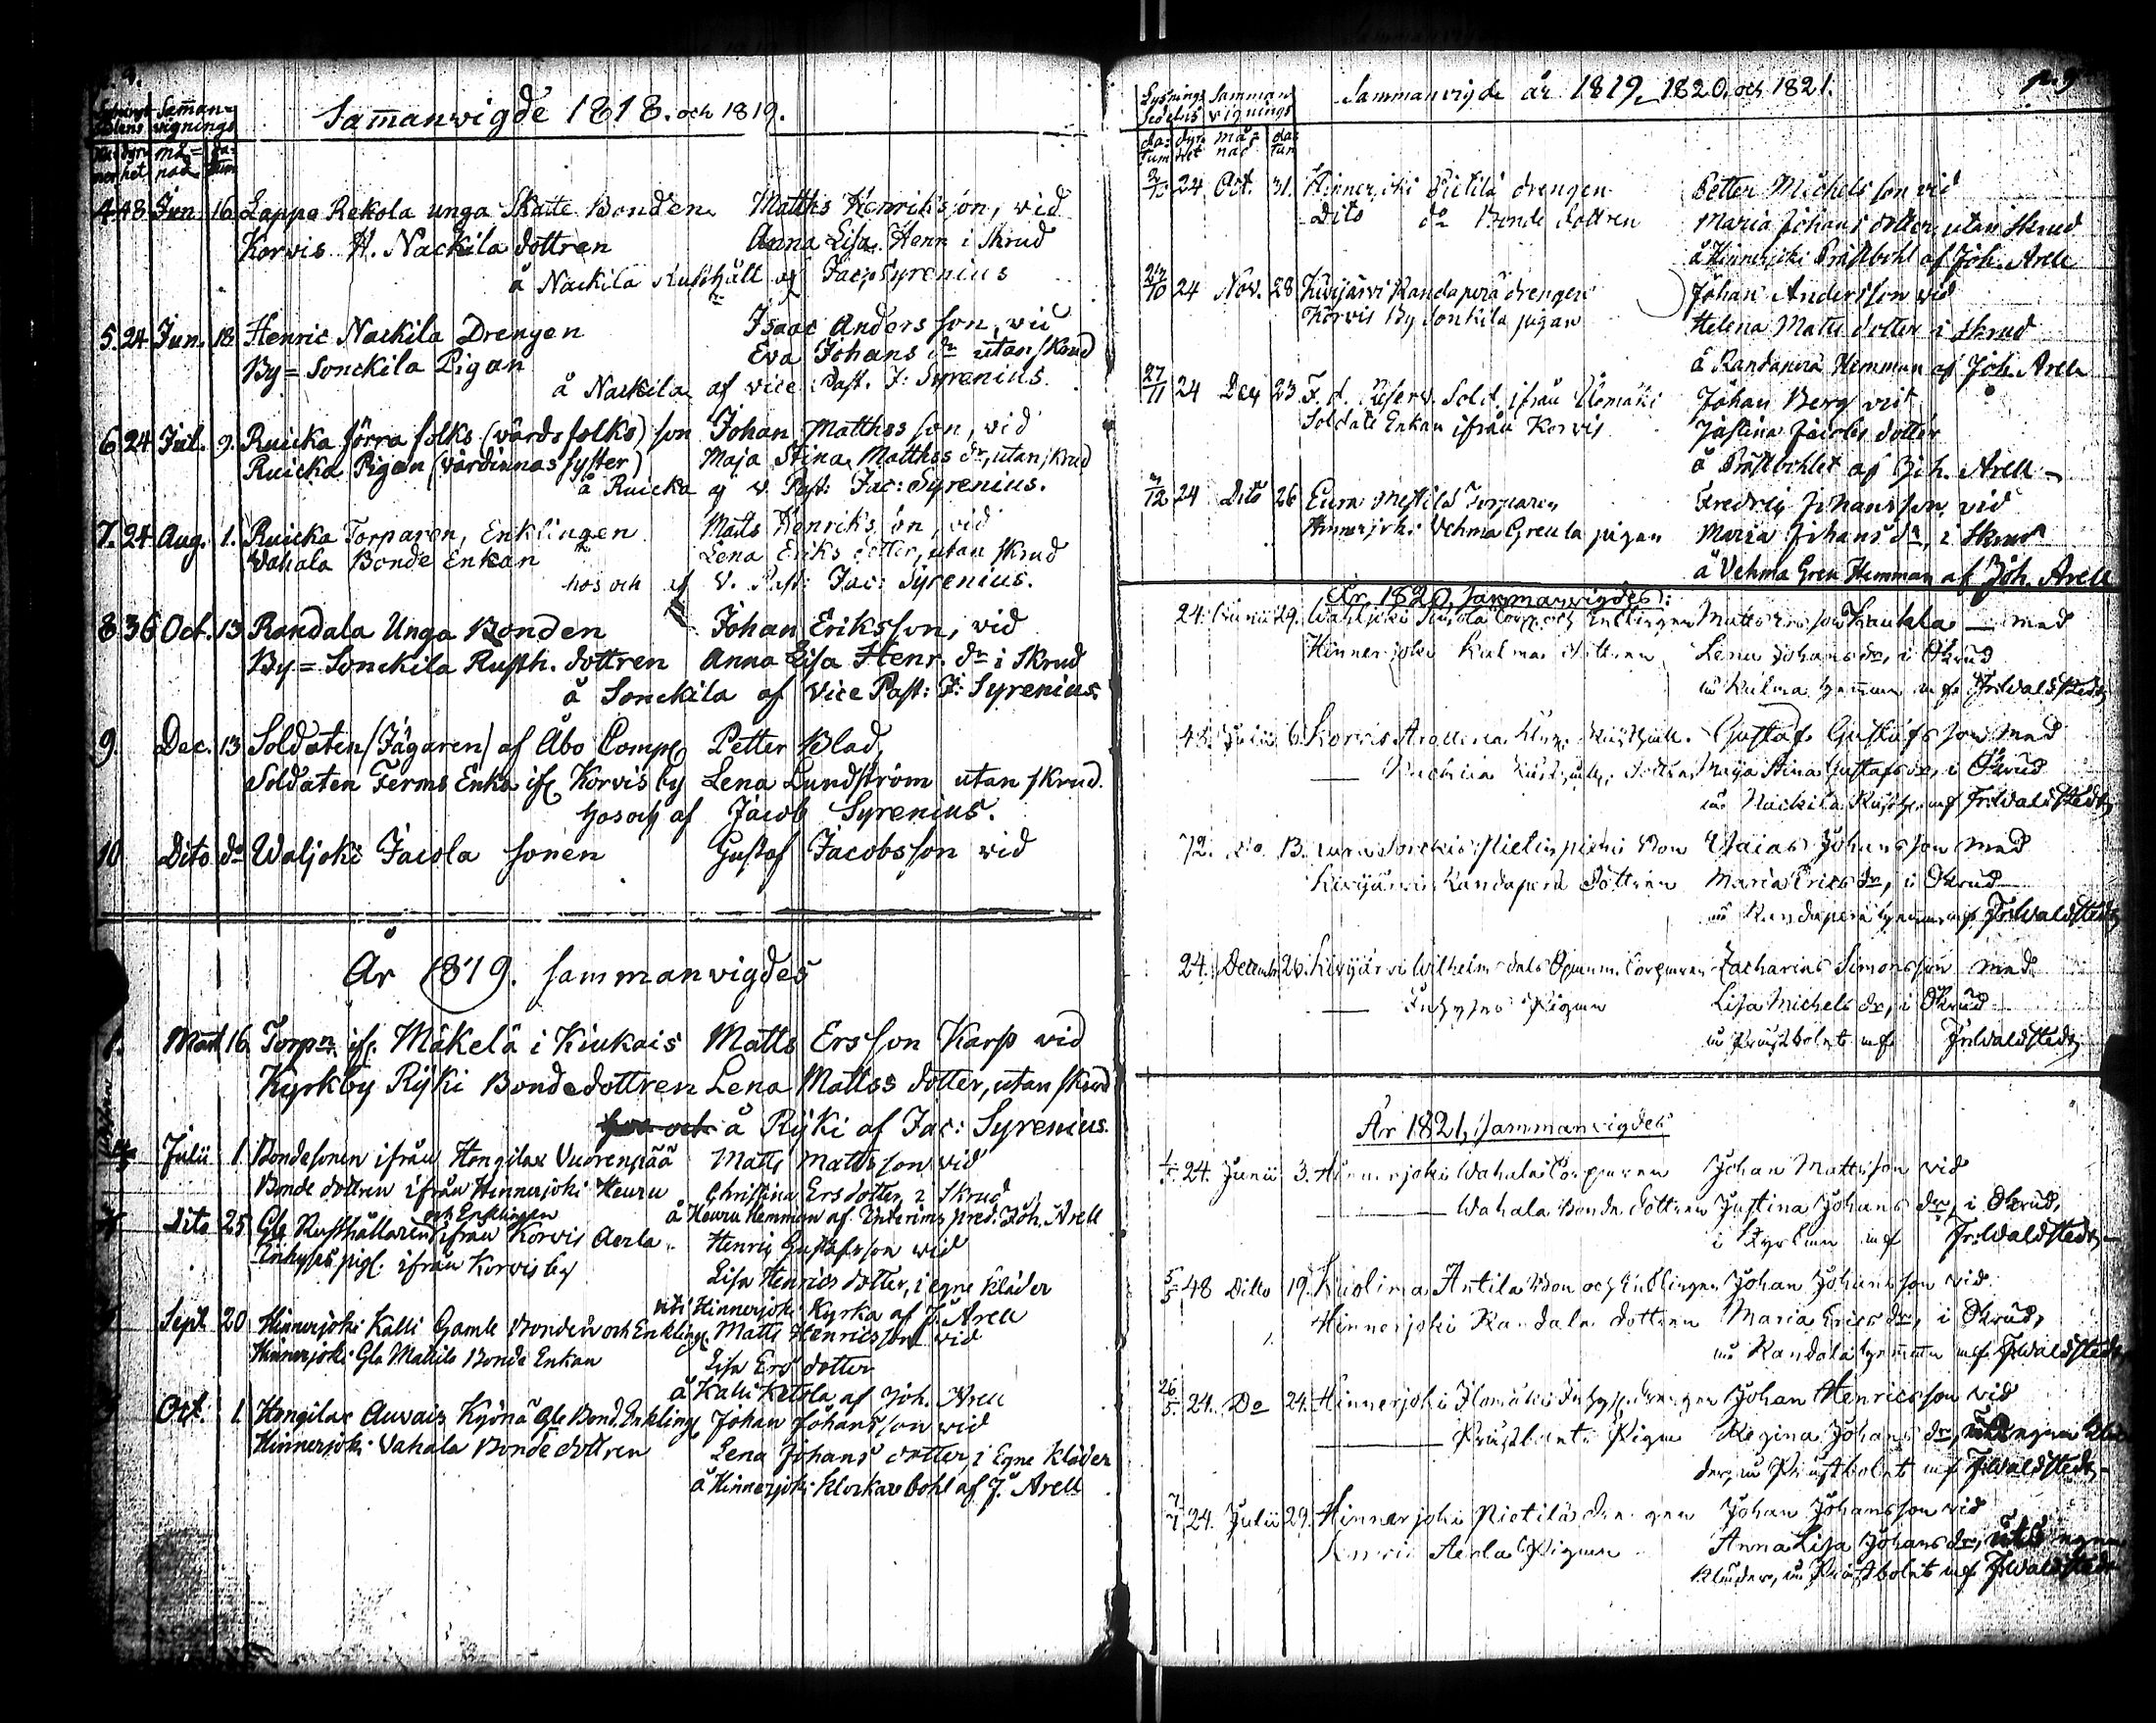 Samanwigde 1818. och 1819.
Saman=
vignings
48 Jun. 16 Lappo Rekola unga Skatte Bonden Matths Henriksson, vid
Korvis H. Nackila dottren Anna Lisa Henr i Skrud
å Nackila Rusthåll af Jac: Syrenius
5. 24 Jun. 18 Henric Nackila Drengen Isaac Andersson, vid
By=Sonckila Pigan Eva Johans dr utan skrud
å Nackila af vice Past. J: Syrenius.
6 24 Jul. 9. Ruicka förra folks (värdsfolks) son Johan Matthsson, vid
Ruicka Pigan (värdinnas syster) Maja Stina Matthos dr, utan skrud
å Ruicka af v. Past: Jac: Syrenius.
7. 24 Aug. 1. Ruicka Torparen, Enklingen Matts Henriksson, vid
Wahala Bonde Enkan Lena Eriks dotter, utan skrud
hos och af V. Past: Jac: Syrenius.
8 36 Oct. 13 Randala Unga Bonden Johan Eriksson, vid
By=Sonckila Rusth. dottren Anna Lisa Henr. dr i Skrud
å Sonckila af Vice Past: J: Syrenius.
9. Dec. 13 Soldaten (Jägaren) af Åbo Comp Petter Blad,
Soldaten Ferms Enka if Korvis by Lena Lundström utan skrud.
hos och af Jacob Syrenius.
10 Dito do Waljoki Jacola sonen Gustaf Jacobsson vid
År 1819. sammanvigdes
1. Mart 16 Torpn if. Mäkelä i Kiukais Matts Ersson Karp vid
Kyrkby Rijki Bondedottren Lena Mattss dotter, utan skrud
hos och å Rijki af Jac: Syrenius.
Julii 1 Bondesonen ifrån Hongilax Vuorenpää Matts Mattsson vid
Bonde dottren ifrån Hinnerjoki Heuru Christina Ers dotter i Skrud
å Heuru Hemman af Interims pred. Joh. Arell
och Enklingen
Dito 25 Gl. Rusthållaren ifrån Korvis Aerla Henric Gustafsson vid
Inhyses pig. ifrån Korvis by Lisa Henrics dotter, i egne kläder
uti Hinnerjoki Kyrka af J. Arell
Sept 20 Hinnerjoki Kalli Gamle Bonden och Enkling. Matts Henricsson vid
Hinnerjoki Gla Mattila Bonde Enkan Lisa Ers dotter
å Kalli Ketola af Joh. Arell
Oct. 1 Hongilax Auvais Kyönä Gle Bond. Enkling Johan Johansson vid
Hinnerjoki Vahala Bonde dottren Lena Johans dotter i Egne Kläder
å Hinnerjoki Klockare bohl af J. Arell
Sammanvigde år 1819, 1820, och 1821. p. 9
Lysnings Samman
Sedelns vignings
da= dyr må= da=
tum het nad tum
24 Oct. 31. Hinnerjoki Pietilä drengen Petter Michelsson vid
Dito do Bonde dottren Maria Johans dotter, utan Skrud
å Hinnerjoki Prästbohl af Joh. Arell
24 Nov. 28 Kivijärvi Randaperä drengen Johan Andersson vid
Korvis By Sonkila pigan Helena Matts dotter i Skrud
å Randaperä Hemman af Joh. Arell
27/11 24 Dec 23 F. d. Reserv. Sold. ifrån Johan Berg vid
Soldate Enkan ifrån Korvis Justina Jacobs dotter
å Prästbohlet af Joh. Arell
24 Dito 26 Eura Mestilä Torparen Fredric Johansson, vid
Hinnerjoki Vehma Greula pigan Maria Johans dr, i Skrud
å Vehma Greu Hemman af Joh. Arell
År 1820, sammanvigdes:
24. Junii 29. Matts Ersson Kaukola — med
Hinnerjoki Kulma dottren Lena Johans dr, i Skrud
å Kulma hemman af Fr: Waldstedt
48. Julii 6. Korvis Gustaf Gustafsson med
dottren Maja Stina Gustafs dr, i Skrud
å Nackila Rusth. af Fr: Waldstedt
72. Do 13. Esaias Johansson med
Kivijärvi Randaperä dottren Maria Erics dr, i Skrud
å Randaperä hemman af Fr: Waldstedt
24. Decemb. 26. Kivijärvi Wilhelmsdals Torparen Zacharias Simonsson med
— Inhyses Pigan Lisa Michels dr, i Skrud
å Prästbolet af Fr: Waldstedt
År 1821, Sammanvigdes
24. Junii 3. Hinnerjoki Wahala Torparen Johan Mattsson vid
— Wahala Bonde dottren Justina Johans dr, i Skrud,
i Kyrkan af Fr: Waldstedt
48 Ditto 19. Kuolima Antila Bon och Enklingen Johan Johansson vid
Hinnerjoki Randala dottren Maria Erics dr, i Skrud,
å Randala hemman af Fr: Waldstedt
26/5. 24. Do 24. Hinnerjoki Ilomäki Inhyses drengen Johan Henricsson vid
— Prästbols Pigan Regina Johans dr, uti egna klä-
der, å Prästbolet af Fr: Waldstedt
24. Julii 29. Hinnerjoki Pietilä drengen Johan Johansson vid
Korvis Aerla Pigan Anna Lisa Johans dr, uti egna
kläder, å Prästbolet af Fr: Waldstedt